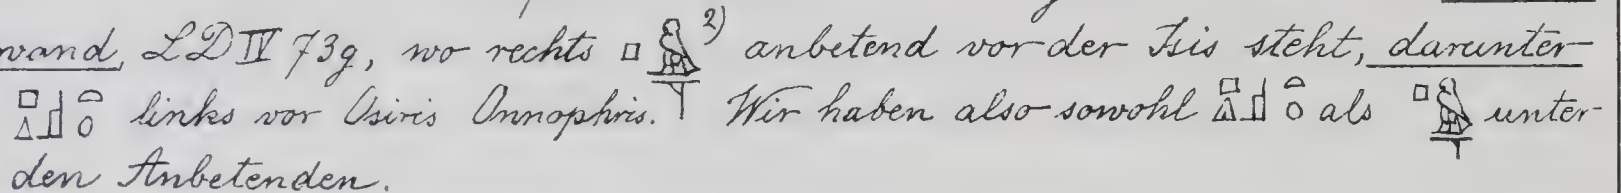 wand, LD IV 73g, wo rechts 2) anbetend vor der Isis steht, darunter
links vor Osiris Onnophris. Wir haben also sowohl als unter
den Anbetenden.